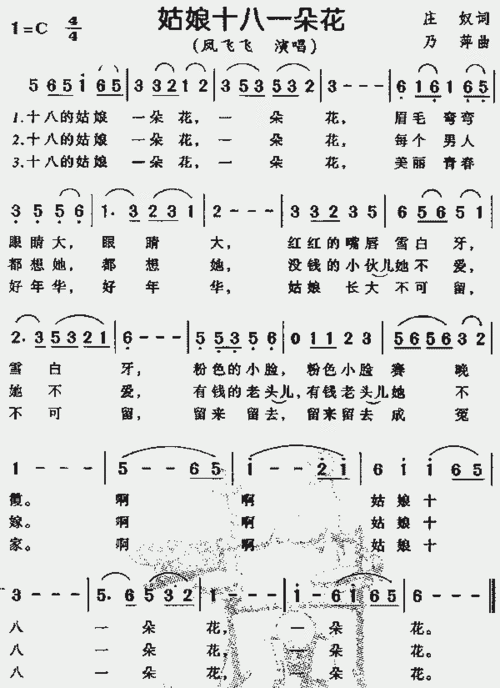 姑娘十八一朵花
1=C 4/4
(凤飞飞 演唱)
庄 奴 词
乃 萍 曲
5 6 5 1 6 5 | 3 3 2 1 2 | 3 5 3 2 3 | 3 - - - | 6 1 6 1 6 5 |
1.十八的姑娘 一朵 花, 一 朵 花, 眉毛 弯弯
2.十八的姑娘 一朵 花, 一 朵 花, 每个 男人
3.十八的姑娘 一朵 花, 一 朵 花, 美丽 青春
3 5 5 6 | 1. 3 2 3 1 | 2 - - - | 3 3 2 3 5 | 6 5 6 5 1 |
眼睛大, 眼 睛 大, 红红的嘴唇 雪白 牙,
都想她, 都 想 她, 没钱的小伙儿她不 爱,
好年华, 好 年 华, 姑娘 长大 不可 留,
2. 3 5 3 2 1 | 6 - - - | 5 5 3 5 6 | 0 1 1 2 3 | 5 6 5 6 3 2 |
雪 白 牙, 粉色的小脸, 粉色小脸 赛 晚
她 不 爱, 有钱的老头儿,有钱老头儿她 不
不 可 留, 留来 留去, 留来留去 成 冤
1 - - - | 5 - - 6 5 | 1 - - 2 1 | 6 1 1 6 5 |
霞。 啊 啊 姑 娘 十
嫁。 啊 啊 姑 娘 十
家。 啊 啊 姑 娘 十
3 - - - | 5. 6 5 3 2 | 1 - - - | 1 - 6 1 6 5 | 6 - - - ‖
八 一 朵 花, 一 朵 花。
八 一 朵 花, 一 朵 花。
八 一 朵 花, 一 朵 花。